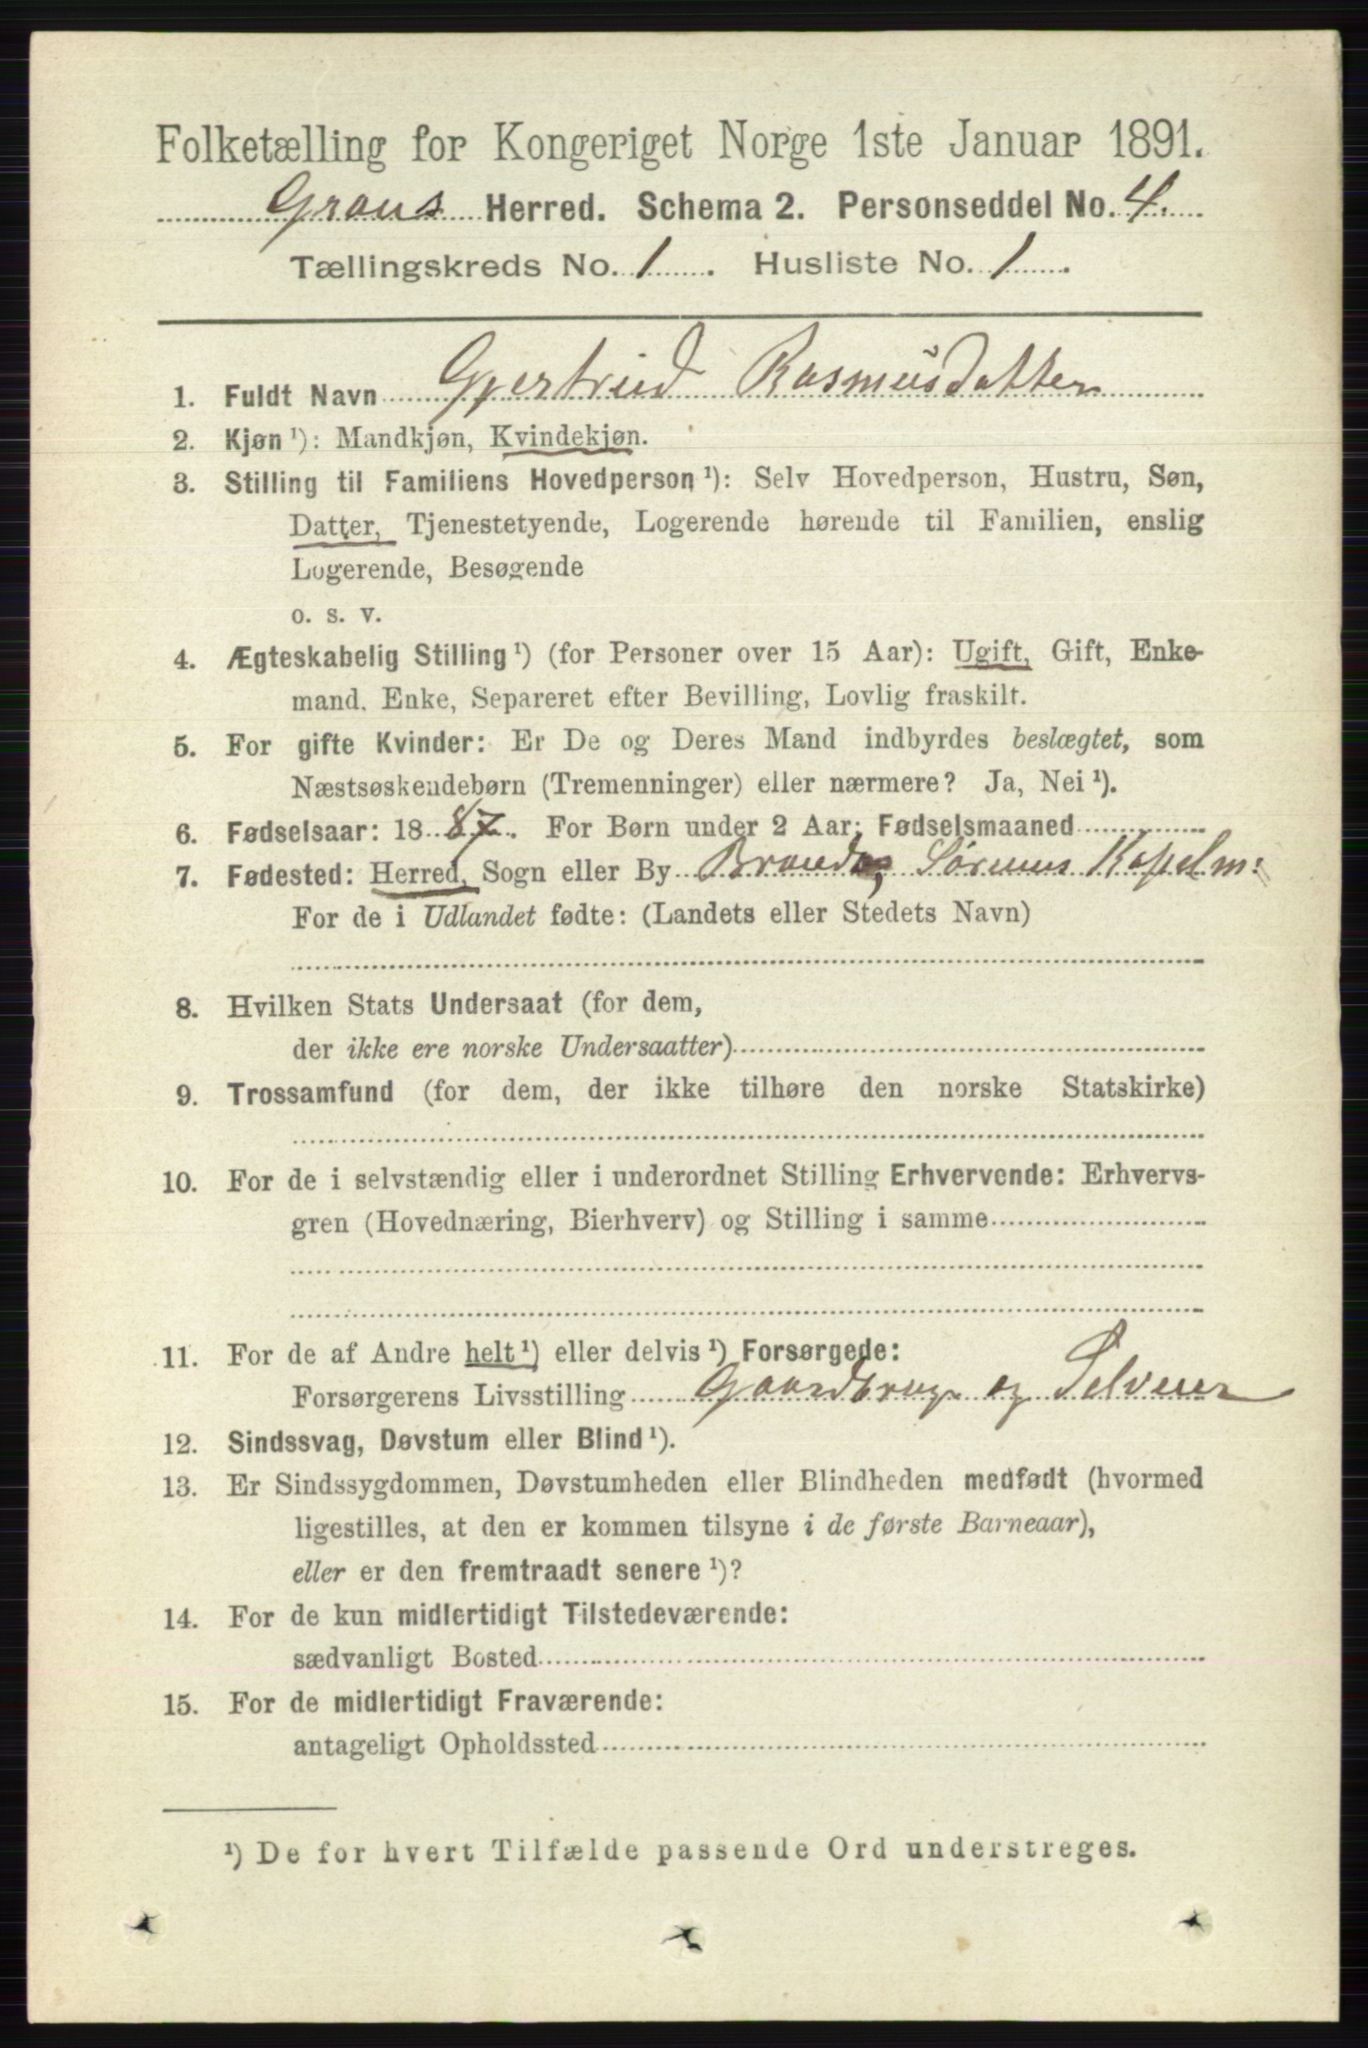 Folketælling for Kongeriget Norge 1ste Januar 1891.
Grans Herred. Schema 2. Personseddel No. 4.
Tællingskreds No. 1. Husliste No. 1.
1. Fuldt Navn Gjertrud Rasmusdatter
2. Kjøn ¹): Mandkjøn, Kvindekjøn.
3. Stilling til Familiens Hovedperson ¹): Selv Hovedperson, Hustru, Søn,
Datter, Tjenestetyende, Logerende hørende til Familien, enslig
Logerende, Besøgende
o. s. v.
4. Ægteskabelig Stilling ¹) (for Personer over 15 Aar): Ugift, Gift, Enke-
mand, Enke, Separeret efter Bevilling, Lovlig fraskilt.
5. For gifte Kvinder: Er De og Deres Mand indbyrdes beslægtet, som
Næstsøskendebørn (Tremenninger) eller nærmere? Ja, Nei ¹).
6. Fødselsaar: 1887. For Børn under 2 Aar: Fødselsmaaned
7. Fødested: Herred, Sogn eller By
For de i Udlandet fødte: (Landets eller Stedets Navn)
8. Hvilken Stats Undersaat (for dem,
der ikke ere norske Undersaatter)
9. Trossamfund (for dem, der ikke tilhøre den norske Statskirke)
10. For de i selvstændig eller i underordnet Stilling Erhvervende: Erhvervs-
gren (Hovednæring, Bierhverv) og Stilling i samme
11. For de af Andre helt ¹) eller delvis ¹) Forsørgede:
Forsørgerens Livsstilling Gaardbruger og Selveier
12. Sindssvag, Døvstum eller Blind ¹).
13. Er Sindssygdommen, Døvstumheden eller Blindheden medfødt (hvormed
ligestilles, at den er kommen tilsyne i de første Barneaar),
eller er den fremtraadt senere ¹)?
14. For de kun midlertidigt Tilstedeværende:
sædvanligt Bosted
15. For de midlertidigt Fraværende:
antageligt Opholdssted
¹) De for hvert Tilfælde passende Ord understreges.